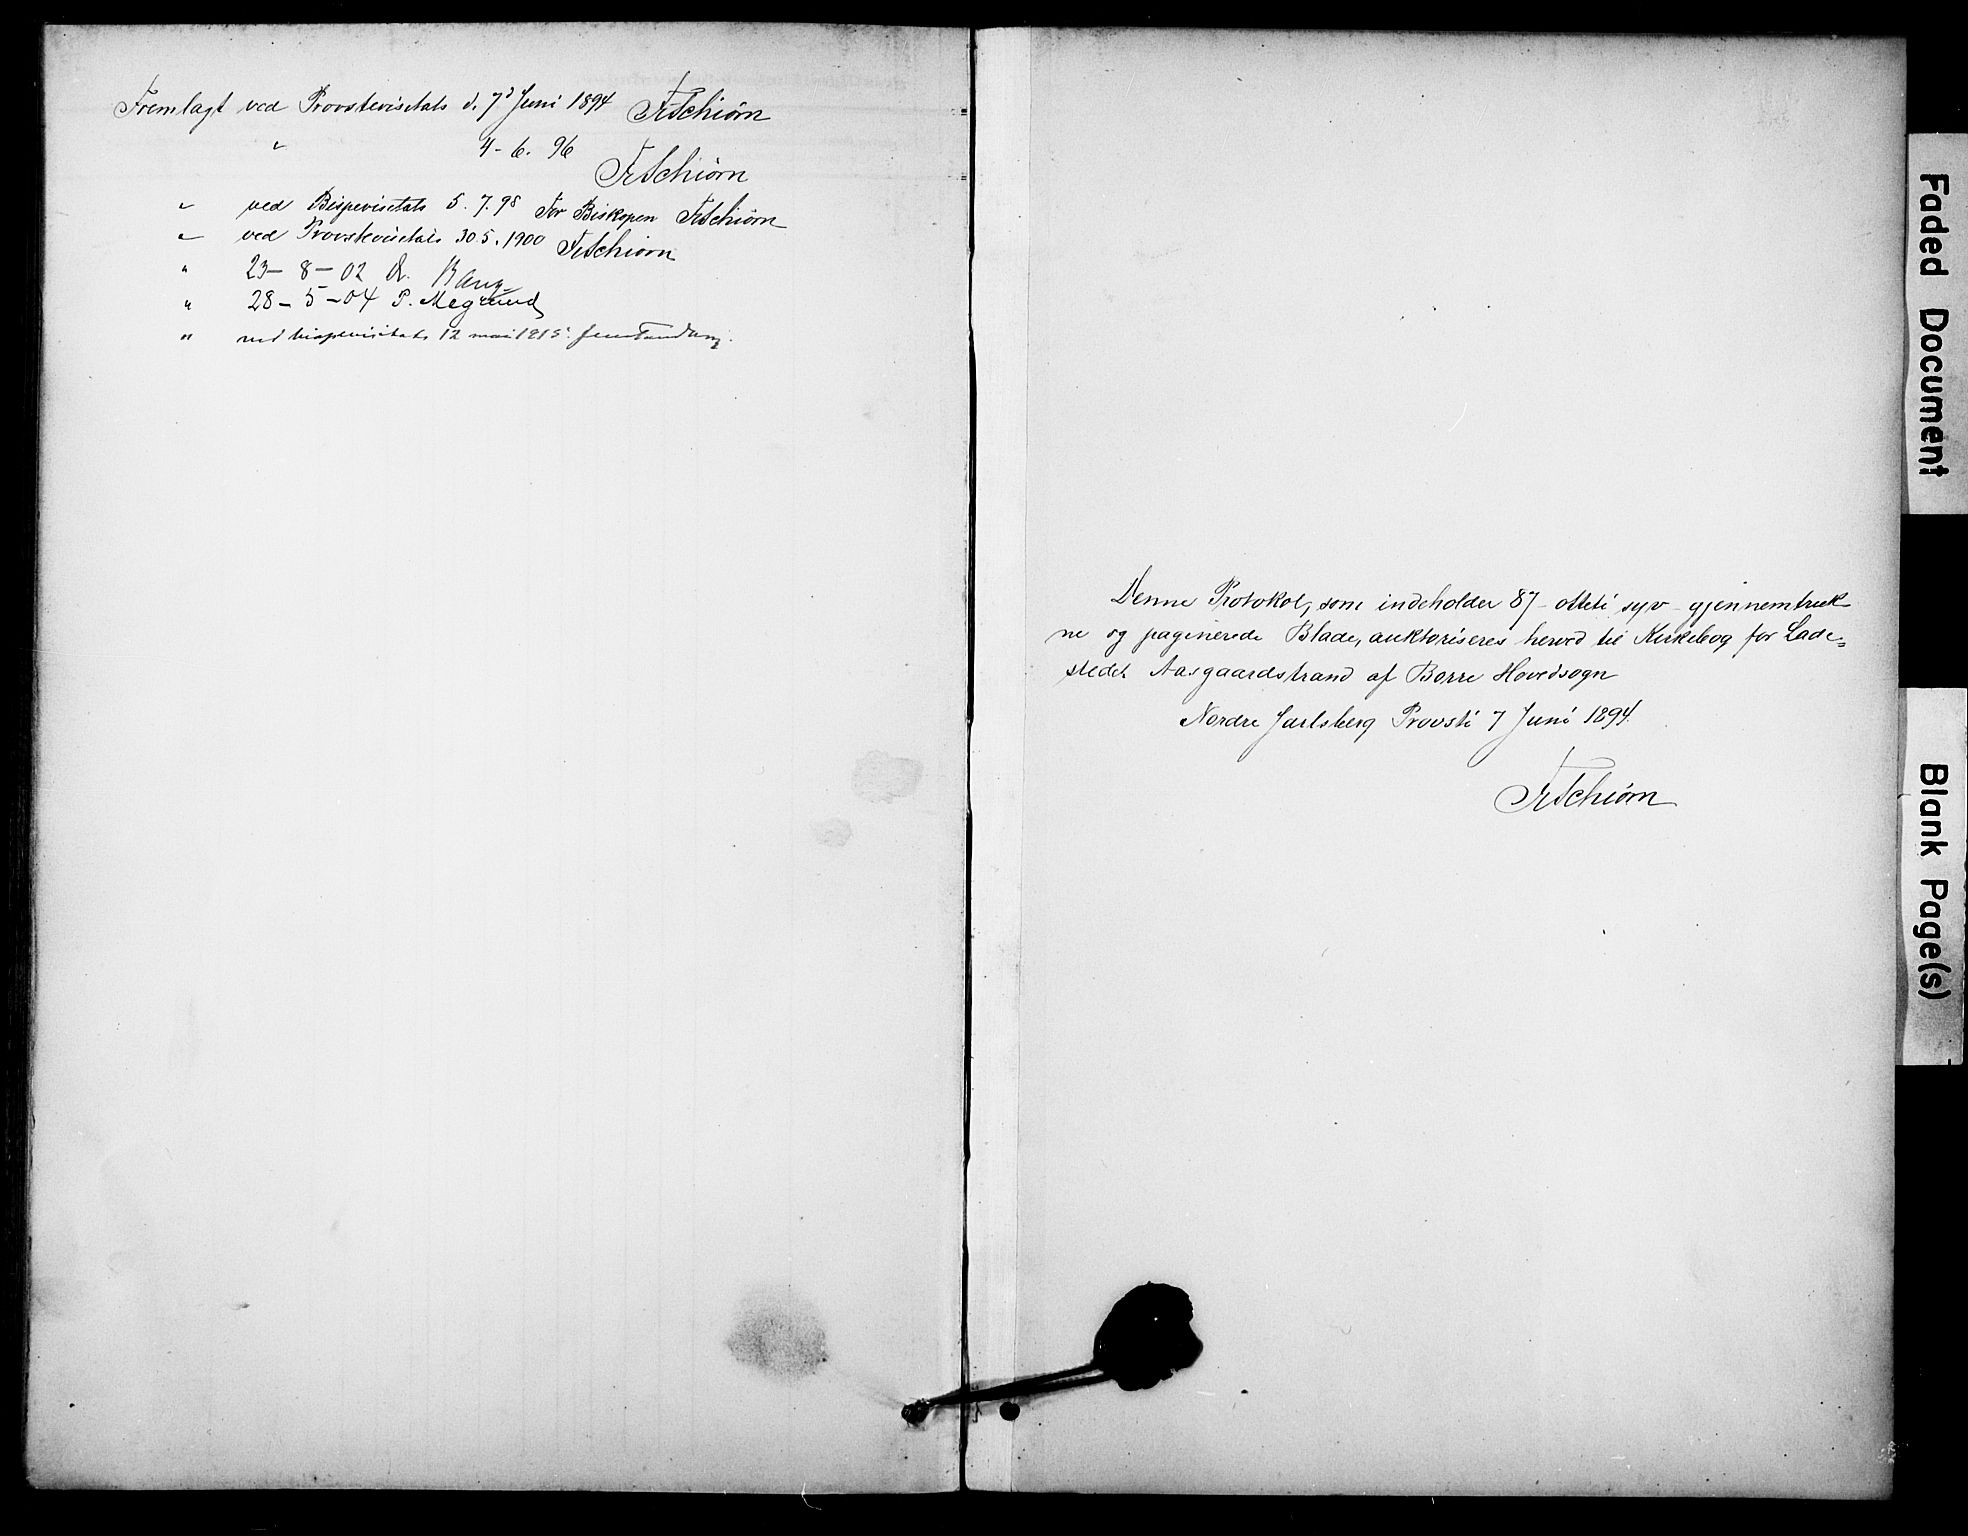 Fremlagt ved Provstevisitats d. 7d Juni 1894 FrSchiørn
" 4-6. 96
FrSchiørn
" ved Bispevisitats 5.7.98 For Biskopen FrSchiørn
" ved Provstevisitats 30.5.1900 FrSchiørn
" 23-8-02 Dr. Bang
" 28-5-04 P.
" ved bispevisitats 12 mai 1915. Jens Tandberg.
Denne Protokol, som indeholder 87 - otteti syv - gjennemtruk
ne og paginerede Blade, auktoriseres herved til Kirkebog for Lade=
stedet Aasgaardstrand af Borre Hovedsogn
Nordre Jarlsberg Provsti 7 Juni 1894.
FrSchiørn
Faded Document
Blank Page(s)